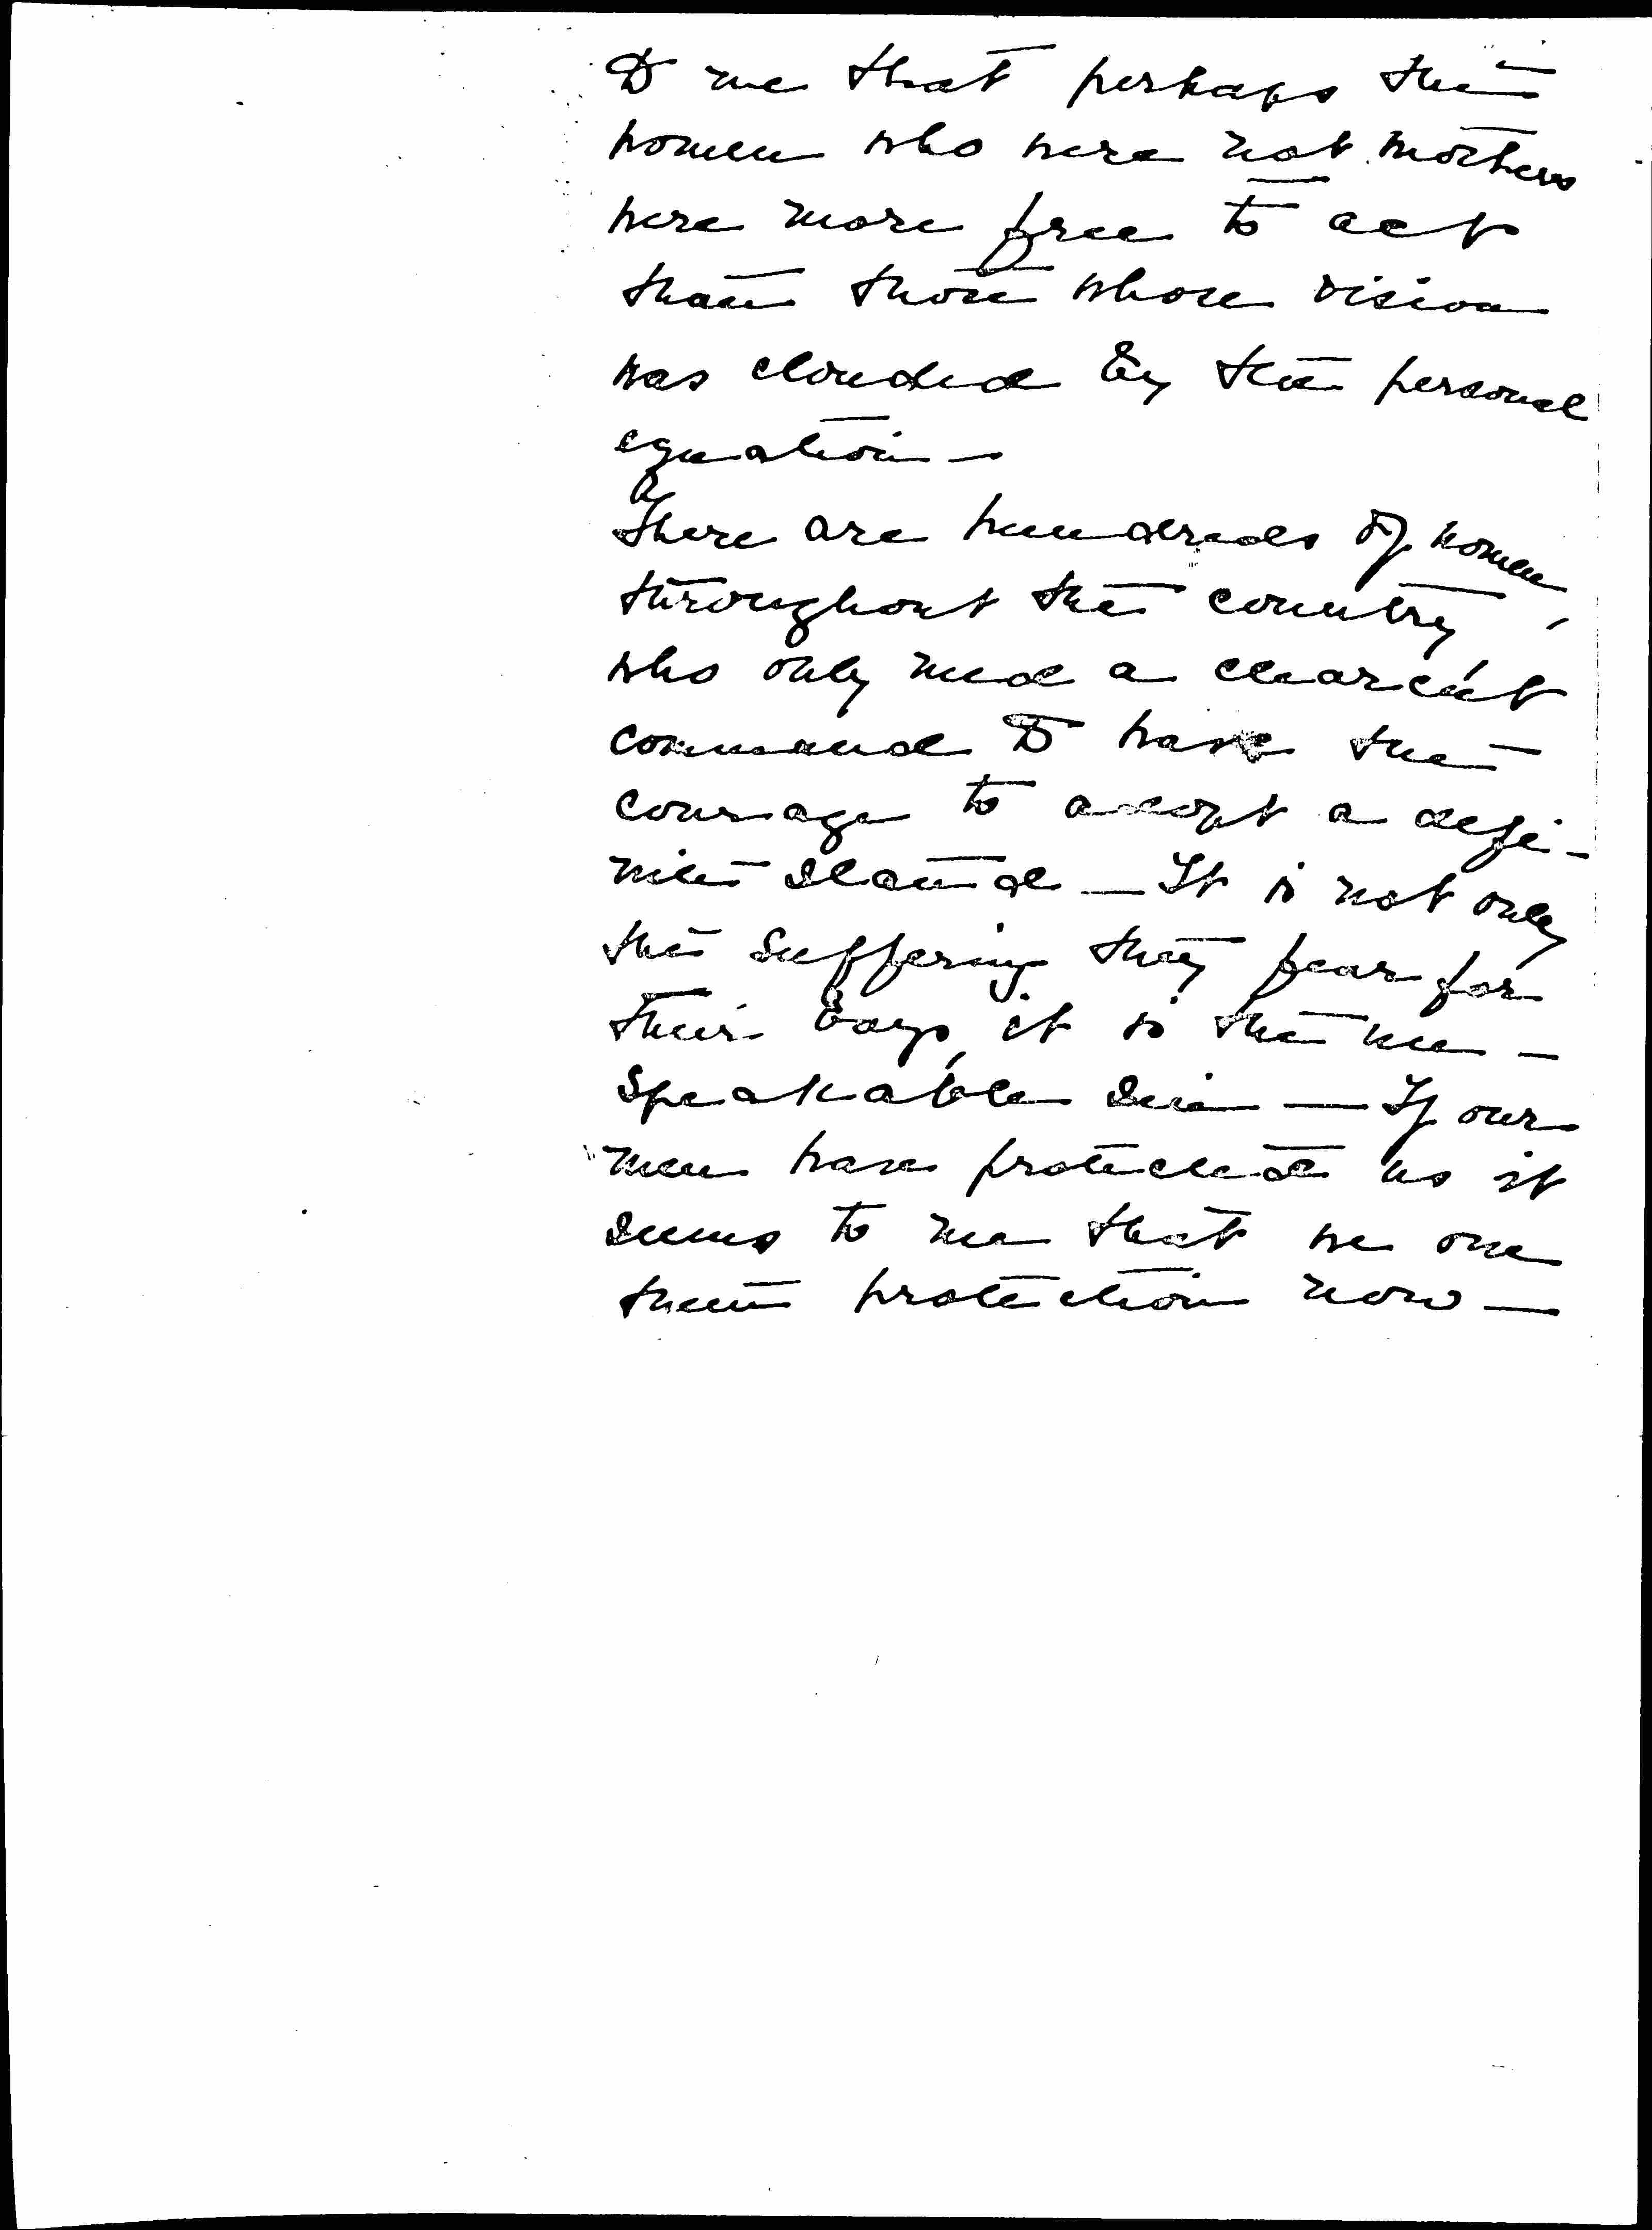 to me that perhaps the
women who were not mothers
were more free to act
than those whose vision
was clouded by the personal
equation —
There are hundreds of women,
throughout the country,
who only need a clearcut
command to have the
courage to adopt a defi-
nite stand — It is not only
the suffering they fear for
their boys, it is the un-
speakable sin — If our
men have protected us it
seems to me that we owe
them protection now —